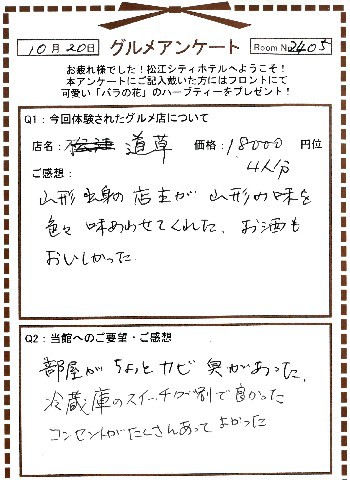 10月20日 グルメアンケート Room No.2405
お疲れ様でした！松江シティホテルへようこそ！
本アンケートにご記入戴いた方にはフロントにて
可愛い「バラの花」のハーブティーをプレゼント！
Q1：今回体験されたグルメ店について
店名： 道草 価格：18000 円位
4人分
ご感想：
山形出身の店主が 山形の味を
色々 味あわせてくれた。お酒も
おいしかった
Q2：当館へのご要望・ご感想
部屋がちょっとカビ臭があった、
冷蔵庫のスイッチが別で良かった
コンセントがたくさんあって よかった